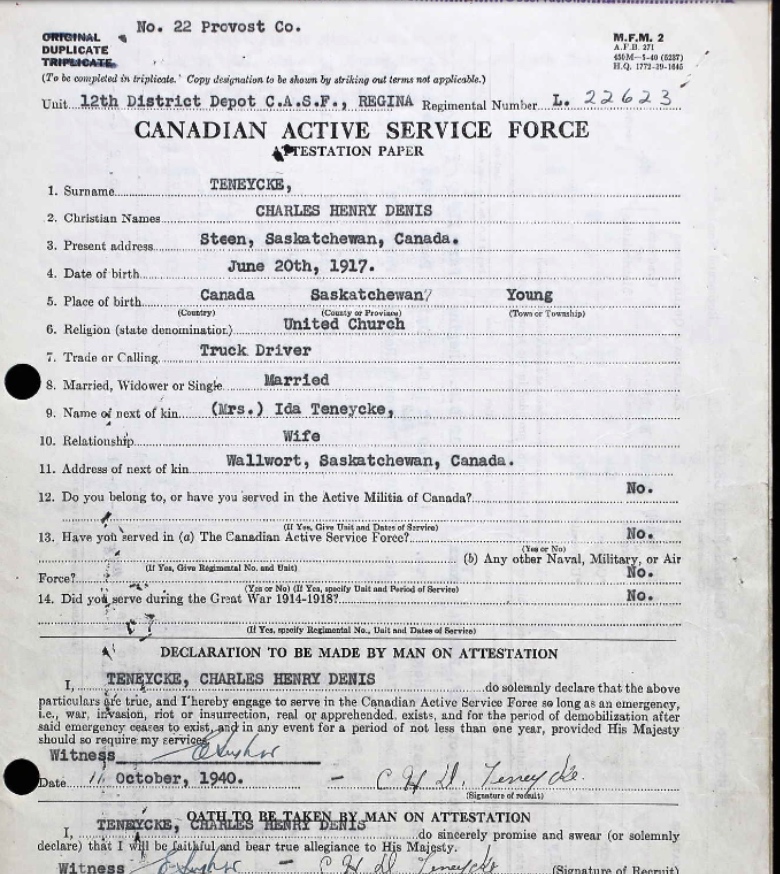 No. 22 Provost Co.
ORIGINAL
DUPLICATE
TRIPLICATE
M.F.M. 2
A.F.B. 271
450M—1-40 (5287)
H.Q. 1772-39-1645
(To be completed in triplicate. Copy designation to be shown by striking out terms not applicable.)
Unit 12th District Depot C.A.S.F., REGINA Regimental Number L. 22623
CANADIAN ACTIVE SERVICE FORCE
ATTESTATION PAPER
1. Surname TENEYCKE,
2. Christian Names CHARLES HENRY DENIS
3. Present address Steen, Saskatchewan, Canada.
4. Date of birth June 20th, 1917.
5. Place of birth Canada Saskatchewan Young
(Country) (County or Province) (Town or Township)
6. Religion (state denomination) United Church
7. Trade or Calling Truck Driver
8. Married, Widower or Single Married
9. Name of next of kin (Mrs.) Ida Teneycke,
10. Relationship Wife
11. Address of next of kin Wallwort, Saskatchewan, Canada.
12. Do you belong to, or have you served in the Active Militia of Canada? No.
(If Yes, Give Unit and Dates of Service)
13. Have you served in (a) The Canadian Active Service Force? No.
(Yes or No)
(b) Any other Naval, Military, or Air
(If Yes, Give Regimental No. and Unit)
Force? No.
(Yes or No) (If Yes, specify Unit and Period of Service)
14. Did you serve during the Great War 1914-1918? No.
(If Yes, specify Regimental No., Unit and Dates of Service)
DECLARATION TO BE MADE BY MAN ON ATTESTATION
I, TENEYCKE, CHARLES HENRY DENIS do solemnly declare that the above
particulars are true, and I hereby engage to serve in the Canadian Active Service Force so long as an emergency,
i.e., war, invasion, riot or insurrection, real or apprehended, exists, and for the period of demobilization after
said emergency ceases to exist, and in any event for a period of not less than one year, provided His Majesty
should so require my services.
Witness
Date 11 October, 1940. – C H D. Teneycke.
(Signature of recruit)
OATH TO BE TAKEN BY MAN ON ATTESTATION
I, TENEYCKE, CHARLES HENRY DENIS do sincerely promise and swear (or solemnly
declare) that I will be faithful and bear true allegiance to His Majesty.
Witness – C H D Teneycke (Signature of Recruit)